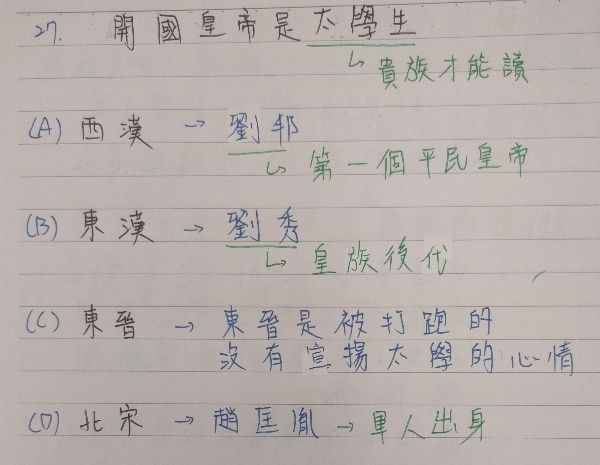 27. 開國皇帝是太學生
↳ 貴族才能讀
(A) 西漢 → 劉邦
↳ 第一個平民皇帝
(B) 東漢 → 劉秀
↳ 皇族後代
(C) 東晉 → 東晉是被打跑的
沒有宣揚太學的心情
(D) 北宋 → 趙匡胤 → 軍人出身